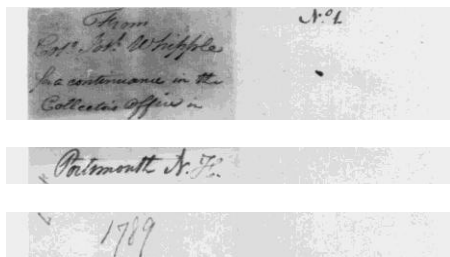 From
Colº. Josh. Whipple
for a continuance in the
Collector's office in
Portsmouth N. H.
1789
Nº. 1